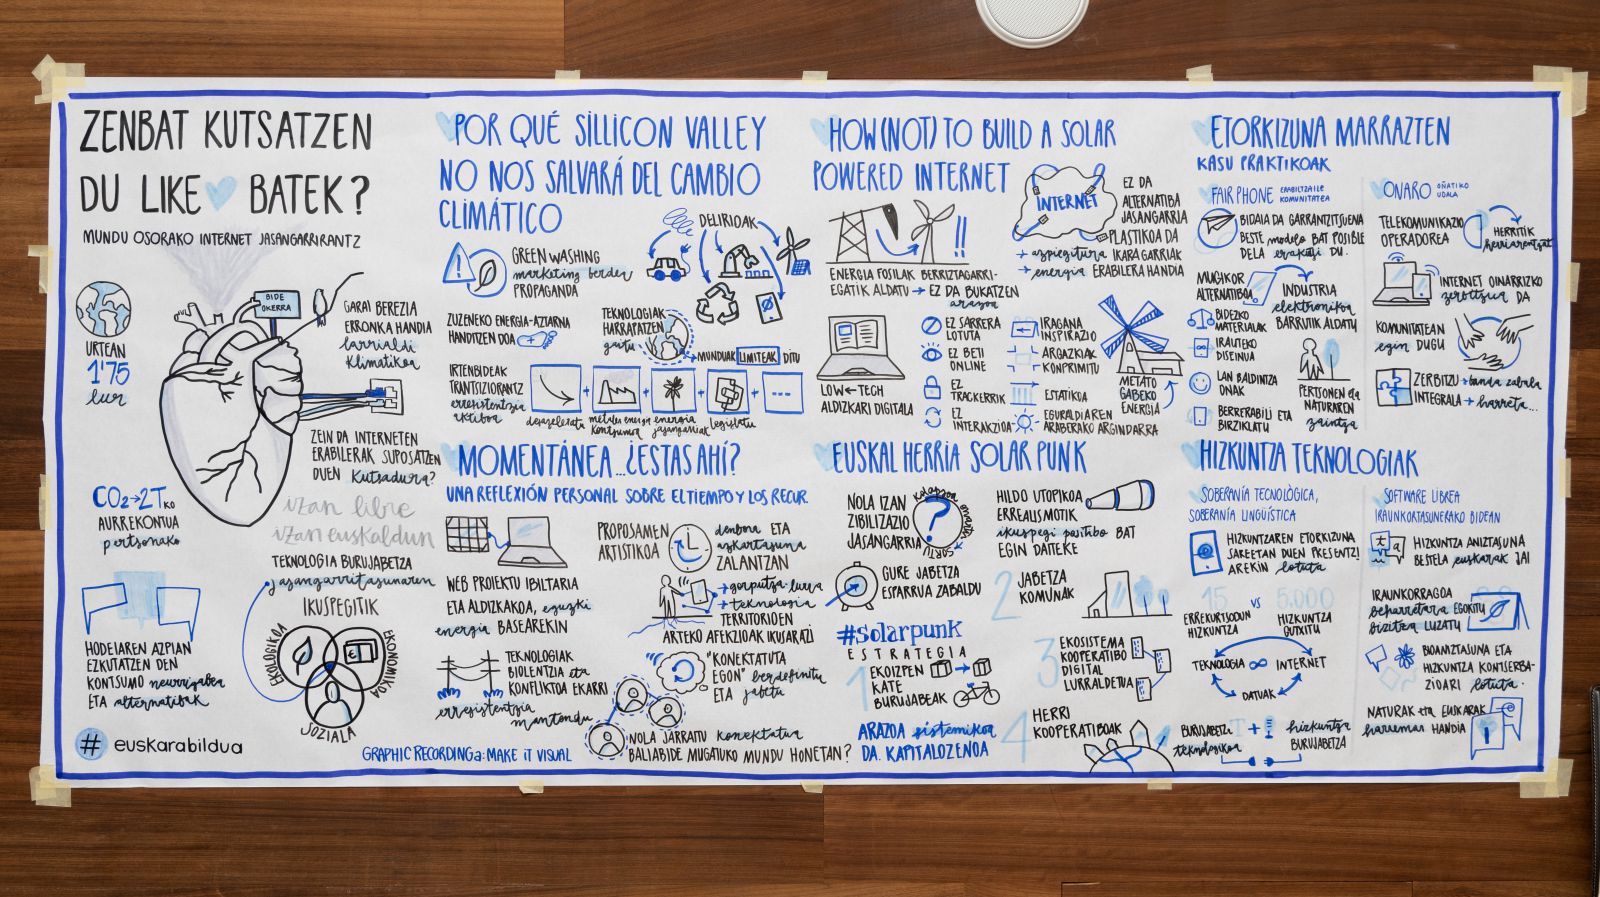 ZENBAT KUTSATZEN
DU LIKE BATEK?
MUNDU OSORAKO INTERNET JASANGARRIRANTZ
URTEAN
1'75
lur
BIDE
OKERRA
GARAI BEREZIA
ERRONKA HANDIA
larrialdi
klimatikoa
ZEIN DA INTERNETEN
ERABILERAK SUPOSATZEN
DUEN kutsadura?
CO2→2T KO
AURREKONTUA
pertsonako
izan libre
izan euskaldun
TEKNOLOGIA BURUJABETZA
jasangarritasunaren
IKUSPEGITIK
EKOLOGIKOA
EKONOMIKOA
SOZIALA
HODEIAREN AZPIAN
EZKUTATZEN DEN
KONTSUMO neurrigabea
ETA alternatibak
# euskarabildua
GRAPHIC RECORDINGa: MAKE IT VISUAL
POR QUÉ SILLICON VALLEY
NO NOS SALVARÁ DEL CAMBIO
CLIMÁTICO
GREEN WASHING
marketing berdea
PROPAGANDA
DELIRIOAK
ZUZENEKO ENERGIA-AZTARNA
HANDITZEN DOA
TEKNOLOGIAK
HARRAPATZEN
gaitu
→MUNDUAK LIMITEAK DITU
IRTENBIDEAK
TRANTSIZIORANTZ
erresistentzia
aktiboa
desazeleratu
metalen energia
kontsumoa
energia
jasangarriak
legislatu
MOMENTÁNEA...¿ESTAS AHÍ?
UNA REFLEXIÓN PERSONAL SOBRE EL TIEMPO Y LOS RECUR.
PROPOSAMEN
ARTISTIKOA
denbora ETA
azkartasuna
ZALANTZAN
WEB PROIEKTU IBILTARIA
ETA ALDIZKAKOA, eguzki
energia BASEAREKIN
→gorputza-lurra
→teknologia
TERRITORIOEN
ARTEKO AFEKZIOAK IKUSARAZI
TEKNOLOGIAK
BIOLENTZIA eta
KONFLIKTOA EKARRI
erresistentzia
mantendu
"KONEKTATUTA
EGON" berdefinitu
ETA jabetu
NOLA JARRAITU konektatua
BALIABIDE MUGATUKO MUNDU HONETAN?
HOW (NOT) TO BUILD A SOLAR
POWERED INTERNET
INTERNET
EZ DA
ALTERNATIBA
JASANGARRIA
PLASTIKOA DA
→ azpiegitura IKARAGARRIAK
→ energia ERABILERA HANDIA
ENERGIA FOSILAK BERRIZTAGARRI-
EGATIK ALDATU → EZ DA BUKATZEN
arazoa
LOW←TECH
ALDIZKARI DIGITALA
EZ SARRERA
LOTUTA
EZ BETI
ONLINE
EZ
TRACKERRIK
EZ
INTERAKZIOA
IRAGANA
INSPIRAZIO
ARGAZKIAK
KONPRIMITU
ESTATIKOA
EGURALDIAREN
ARABERAKO ARGINDARRA
METATO
GABEKO
ENERGIA
EUSKAL HERRIA SOLAR PUNK
NOLA IZAN
ZIBILIZAZIO
JASANGARRIA
HILDO UTOPIKOA
ERREALISMOTIK
ikuspegi positibo BAT
EGIN DAITEKE
GURE JABETZA
ESPARRUA ZABALDU
#solarpunk
ESTRATEGIA
1 EKOIZPEN
KATE
BURUJABEAK
2 JABETZA
KOMUNAK
3 EKOSISTEMA
KOOPERATIBO
DIGITAL
LURRALDETUA
4 HERRI
KOOPERATIBOAK
ARAZOA sistemikoa
DA. KAPITALOZENOA
ETORKIZUNA MARRAZTEN
KASU PRAKTIKOAK
FAIR PHONE ERABILTZAILE
KOMUNITATEA
BIDAIA DA GARRANTZITSUENA
BESTE modelo BAT POSIBLE
DELA erakutsi DU.
MUGIKOR
ALTERNATIBOA
INDUSTRIA
elektronika
BARRUTIK ALDATU
BIDEZKO
MATERIALAK
IRAUTEKO
DISEINUA
LAN BALDINTZA
ONAK
BERRERABILI ETA
BIRZIKLATU
PERTSONEN eta
NATURAREN
zaintza
ONARO OÑATIKO
UDALA
TELEKOMUNIKAZIO
OPERADOREA
HERRITIK
herriarentzat
INTERNET OINARRIZKO
zerbitzua DA
KOMUNITATEAN
egin DUGU
ZERBITZU → banda zabala
INTEGRALA → harreta...
HIZKUNTZA TEKNOLOGIAK
SOBERANÍA TECNOLÒGICA,
SOBERANÍA LINGÜÍSTICA
HIZKUNTZAREN ETORKIZUNA
SAREETAN DUEN PRESENTZI
AREKIN lotuta
15 VS 5.000
ERREKURTSODUN
HIZKUNTZA
HIZKUNTZA
GUTXITU
TEKNOLOGIA ∞ INTERNET
DATUAK
BURUJABETZA
teknologikoa
+
hizkuntza
BURUJABETZA
SOFTWARE LIBREA
IRAUNKORTASUNERAKO BIDEAN
HIZKUNTZA ANIZTASUNA
BESTELA euskarak JAI
IRAUNKORRAGOA
beharretara EGOKITU
bizitza LUZATU
BIOANIZTASUNA ETA
HIZKUNTZA KONTSERBA-
ZIOARI lotuta.
NATURAK eta EUSKARAK
harreman HANDIA